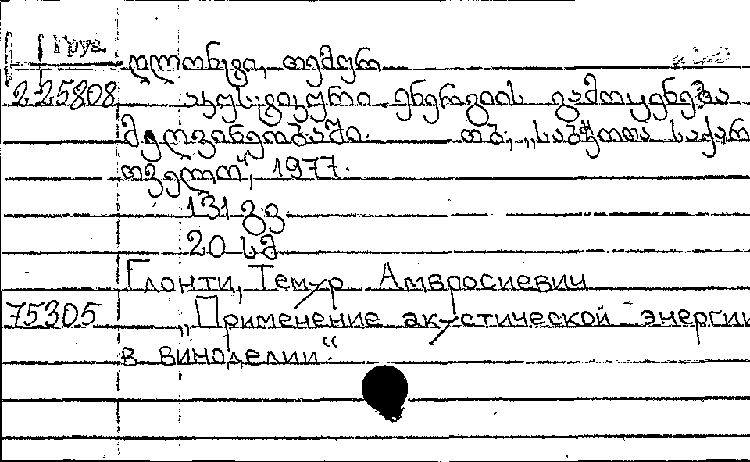 Груз.
ღლონტი, თემურ
225808 აკუსტიკური ენერგიის გამოყენება
მეღვინეობაში. თბ., „საბჭოთა საქარ
თველო“, 1977.
131 გვ
20 სმ
Глонти, Темур Амвросиевич
75305 „Применение акустической энергии
в виноделии“